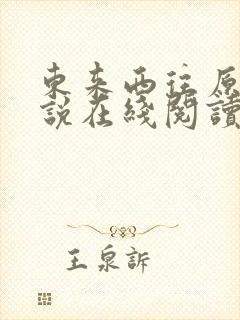 東來西往原
說在綫閱讀
王泉訴